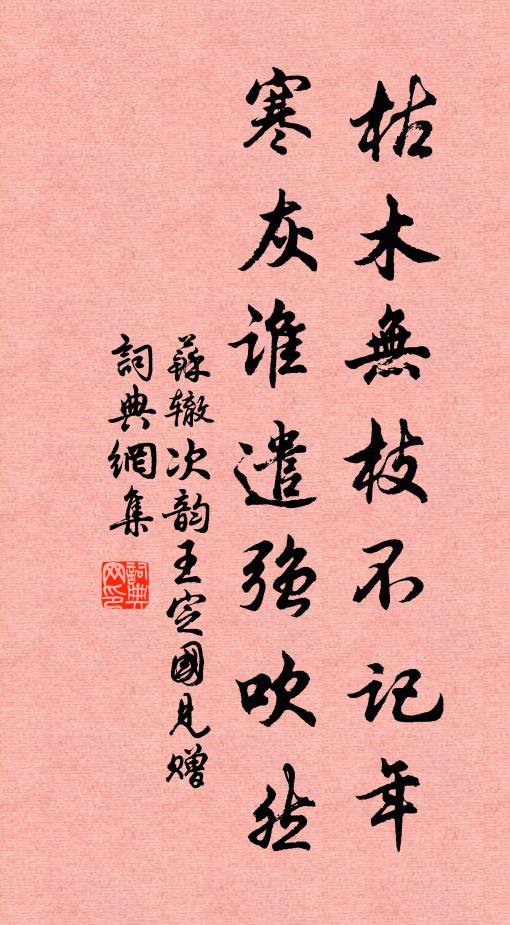 枯木無枝不记年
寒灰谁遣强吹然
蘇辙次韵王定國見赠
詞典網集
詞典
网印